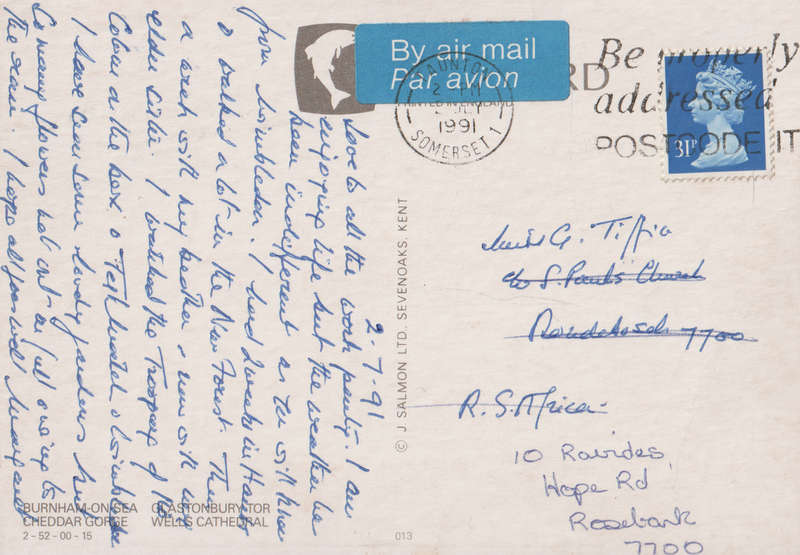 By air mail
Par avion
RD
Be properly
addressed
POSTCODE IT
TAUNTON
PRINTED IN ENGLAND
2 JLY
1991
SOMERSET 1
31P
2-7-91
Love to all the work party. I am
enjoying life but the weather has
been indifferent as you will know
from Wimbledon. I had 2 weeks in Hants
& walked a lot in the New Forest. Then
a week with my brother & now with my
elder sister. I watched the Trooping of the
Colour on the box & Test Match & Wimbledon
I have seen some lovely gardens tho'
so many flowers not out as full owing to
the rain. I hope all goes well Margaret
© J. SALMON LTD., SEVENOAKS, KENT
Miss G. Tiffin
c/o S. Pauls Church
Rondebosch 7700
R. S. Africa
10 Rovides
Hope Rd
Rosebank
7700
BURNHAM-ON-SEA GLASTONBURY TOR
CHEDDAR GORGE WELLS CATHEDRAL
2-52-00-15
013